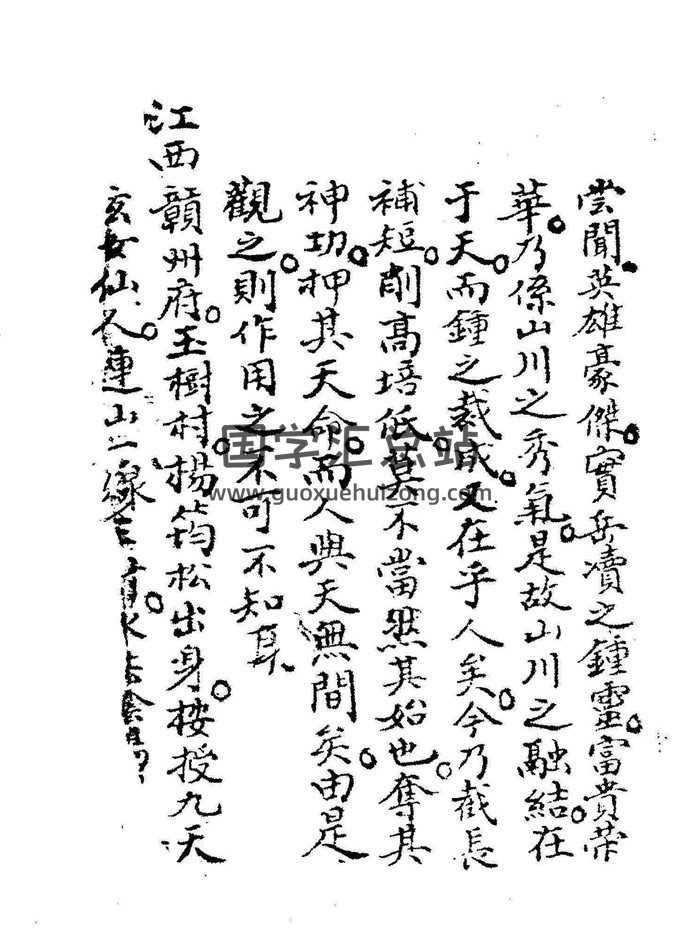 嘗聞。英雄豪傑。實岳瀆之鍾靈。富貴榮
華。乃係山川之秀氣。是故山川之融結。在
于天。而鍾之裁成。又在乎人矣。今乃截長
補短。削高培低。莫不當然。其始也。奪其
神功。押其天命。而人與天無間矣。由是
觀之。則作用之不可不知耳
江西贛州府。玉樹村。楊筠松出身。按授九天
玄女仙人。連山一
国学汇总站
www.guoxuehuizong.com